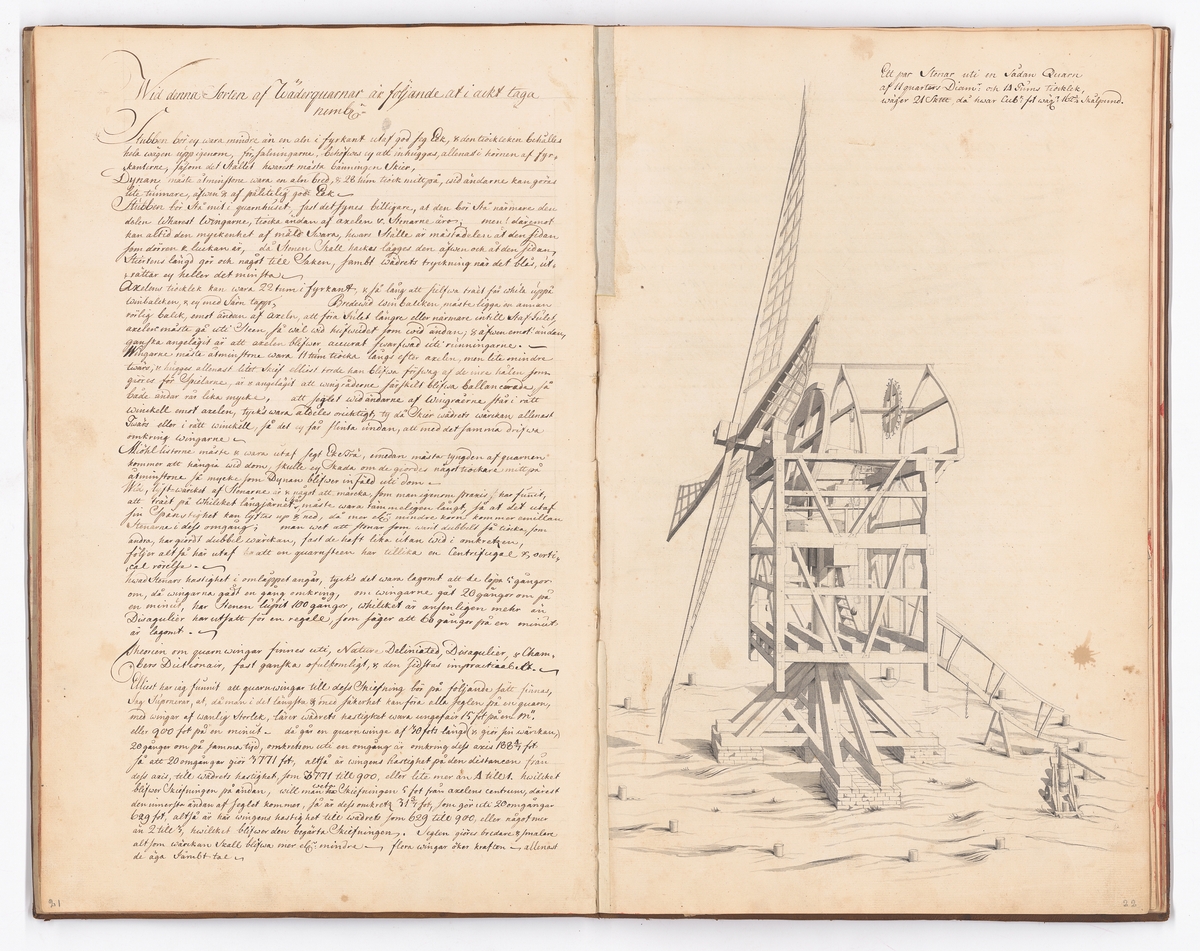 Wid denna Sorten af Wäderquarnar är följande at i ackt taga
nemlig
Stubben bör ej wara mindre än en aln i fyrkant utaf god seg Eek, & den tiockleken behålles
hela wägen uppigenom, för falningarne, behöfwes ej att inhuggas, allenast hörnen af fyr-
kanterne, såsom det Stället hwarest mästa bänningen Skier,
Dynan måste åtminstone wara en aln bred, & 28 tum tiock mitt på, wid ändarne kan göras
lite tunnare, äfwen & af pålitelig godt Eek
Stubben bör Stå mit i quarnhuset, fast det synes billigare, at den bör Stå närmare den
delen hwarest Wingarne, tiocka ändan af axelen & Stenarne äro, men däremot
kan alltid den myckenhet af mäld Swara, hwars Ställe är mästadelen åt den sidan
som dörren & luckan är, då Stenen Skall hackas lägges den äfwen ock åt den sidan,
Stiertens längd gör ock något till Saken, samt wädrets tryckning när det blås, ut-
rättar ej heller det minsta
Axelens tiocklek kan wara 22 tum i fyrkant, & så lång att sielfwa tratt får hwila uppå
winbalcken, & ej med Järn tapp, Bredewid winbalcken måste ligga en annan
rörlig balck, emot ändan af axeln, att föra hiulet längre eller närmare intill Stafhiulet,
axelen måste gå uti Steen, så wäl wid hufwudet som wid ändan, & äfwen emot änden,
ganska angelägit är att axelen blifwer accurat swarfwad uti runningarne.
Wingarne måste åtminstone wara 11 tum tiocka längs efter axelen, men lite mindre
twärs, & hugges allenast litet Skief elliest torde han blifwa förswag af de inre hålen som
giöres för Spelarne, är & angelägit att wingräderne särskilt blifwa ballancerade, så
både ändar wär lika mycke, att seglet wid ändarne af Wingräerna står i rätt
winckell emot axelen, tyckes wara aldeles oricktigt, ty då Skier wädrets wärckan allenast
Twärs eller i rätt winckell, så det ej får slinta undan, att med det samma drifwa
omkring wingarne
Miöhl listorne måste & wara utaf segt Eke Trä, emedan mästa tyngden af quarnen
kommer att hängia wid dom, skulle ej Skada om de giordes något tiockare mitt på
åtminstone så mycke som Dynan blifwer infäld uti dom
Wid lyft-wärcket af Stenarne är & något att märcka, som man igenom praxis har funit,
att träet på hwilcket långjärnet måste wara tämmeligen långt, så at det utaf
sin Spänstighet kan lyftas up & ned, då mer elr mindre korn kommer emillan
Stenarne i dess omgång; man wet att stenar som warit dubbelt så tiocka, som
andra, har giordt dubbel wärckan, fast de haft lika utan wid i omkretzen
följer altså här utaf att en quarnsteen har tillika en Centrifugal & verti-
cal rörelse.
hwad Stenars hastighet i omloppet angår, tyckes det wara lagomt att de löpa 5 gångor
om, då wingarne gådt en gång omkring, om wingarne gåt 20 gångor om på
en minut, har Stenen lupit 100 gångor, hwilcket är ansenligen mehr än
Disagulier har utsatt för en regäle, som säger att 66 gångor på en minut
är lagomt.
Theorien om quarnwingar finnes uti, Nature Deliniated, Disagulier, & Cham-
bers Dictionair, fast ganska ofulkomligt, & den sidstas impractiaabelt.
Elliest har jag funnit att quarnwingar till dess Skiefning bör på följande sätt finnas,
Jag Suponerar, at, då man i det längsta & med säkerhet kan föra alla Seglen på en quarn,
med wingar af wanlig Storlek, lärer wädrets hastighet wara ungefair 15 fot på en m".
eller 900 fot på en minut. då går en quarnwinge af 30 fots längd & giör sin wärckan,
20 gångor om på samma tid, omkretsen uti en omgång är omkring dess axis 188 4/7 fot
så att 20 omgångar giör 3771 fot, altså är wingens hastighet på den distancen från
dess axis, till wädrets hastighet, som 3771 till 900, eller lite mer än 4 till 1. hwilcket
blifwer Skiefningen på ändan, will man weta Skiefningen 5 fot från axelens centrum, därest
den innersta ändan af seglet kommer, så är dess omkretz 31 3/7 fot, som gör uti 20 omgångar
629 fot, altså är här wingens hastighet till wädrets som 629 till 900, eller något mer
än 2 till 3, hwilcket blifwer den begärta Skiefningen. Seglen giöres bredare & smalare
alt som wärckan Skall blifwa mer elr mindre flera wingar ökar kraften allenast
de äga Jämbt tal
21
Ett par Stenar uti en Sådan Quarn
af 11 quarters Diamr. och 14 Tums tiocklek,
wäger 21 Sktt, då hwar Cubr. fot wägr. 162 Skålpund.
22